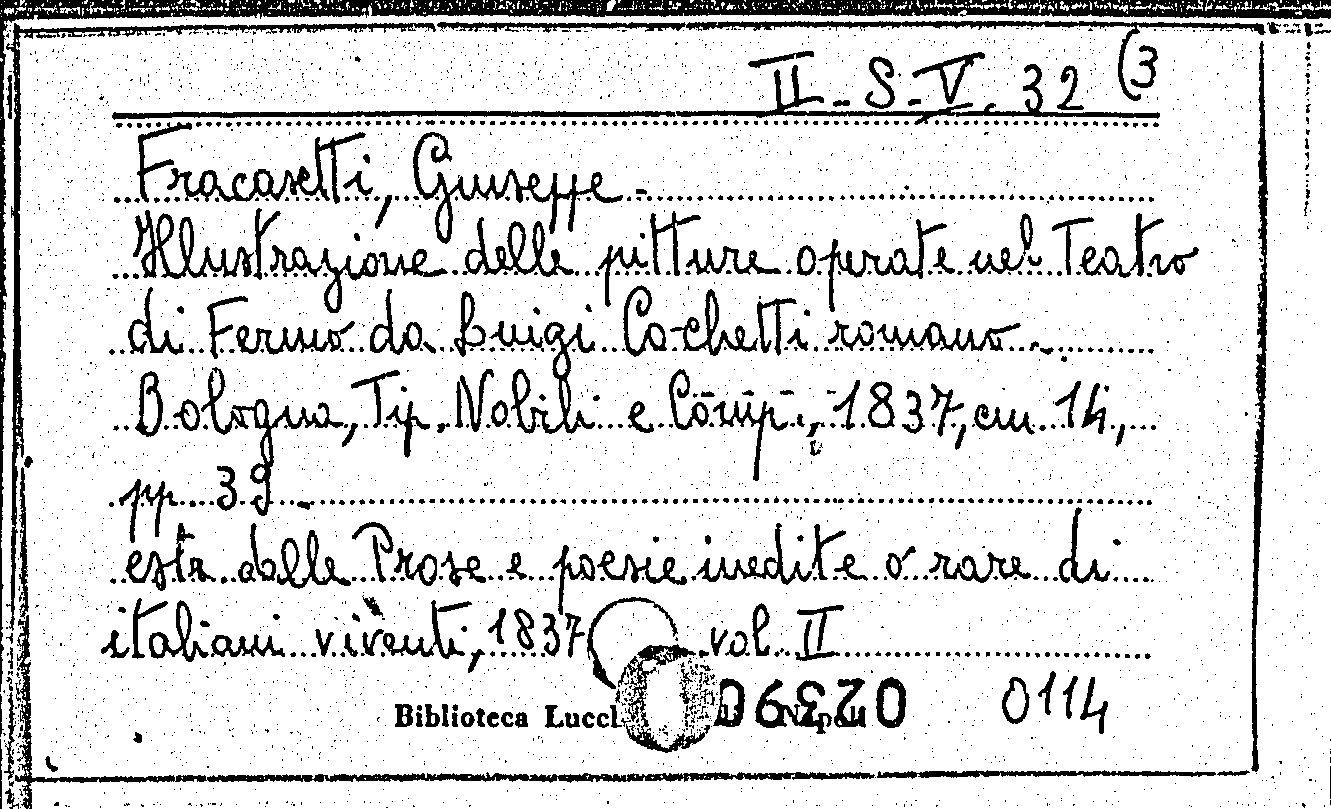 II - S - V. 32 (3
Fracasetti, Giuseppe -
Illustrazione delle pitture operate nel Teatro
di Fermo da Luigi Cochetti romano -
Bologna, Tip. Nobili e Comp., 1837, cm 14,
pp. 39 -
estr. dalle Prose e poesie inedite o rare di
italiani viventi, 1837 vol II
Biblioteca 02390 0114